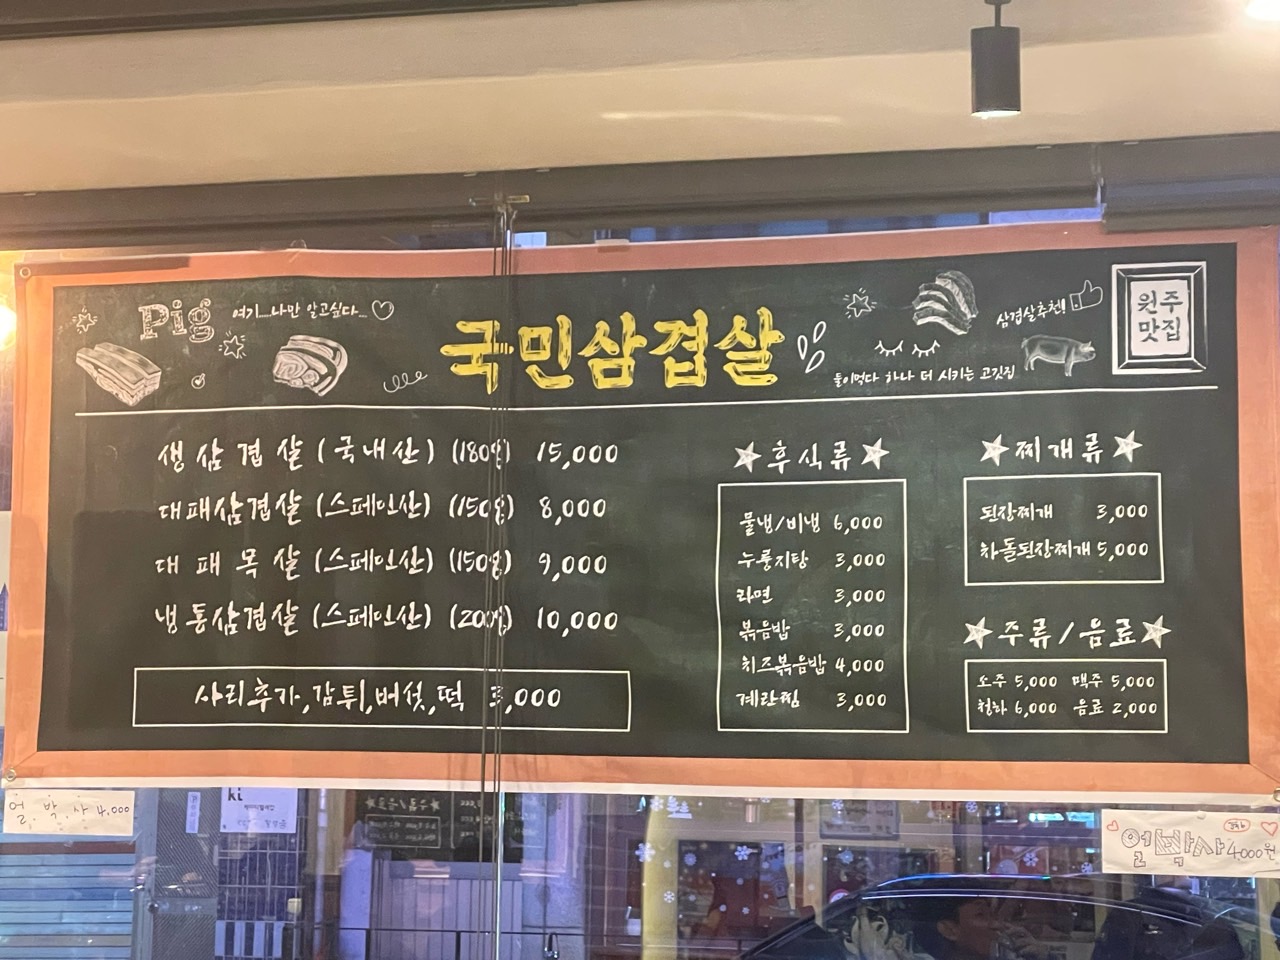 Pig
여기...나만 알고싶다...
국민삼겹살
삼겹살추천!
둘이먹다 하나 더 시키는 고깃집
원주
맛집
생삼겹살(국내산) (180g) 15,000
대패삼겹살(스페인산) (150g) 8,000
대패목살(스페인산) (150g) 9,000
냉동삼겹살(스페인산) (200g) 10,000
사리추가,감튀,버섯,떡 3,000
★후식류★
물냉/비냉 6,000
누룽지탕 3,000
라면 3,000
볶음밥 3,000
치즈볶음밥 4,000
계란찜 3,000
★찌개류★
된장찌개 3,000
차돌된장찌개 5,000
★주류/음료★
소주 5,000 맥주 5,000
청하 6,000 음료 2,000
얼박사 4,000
ki
얼박사 4000원